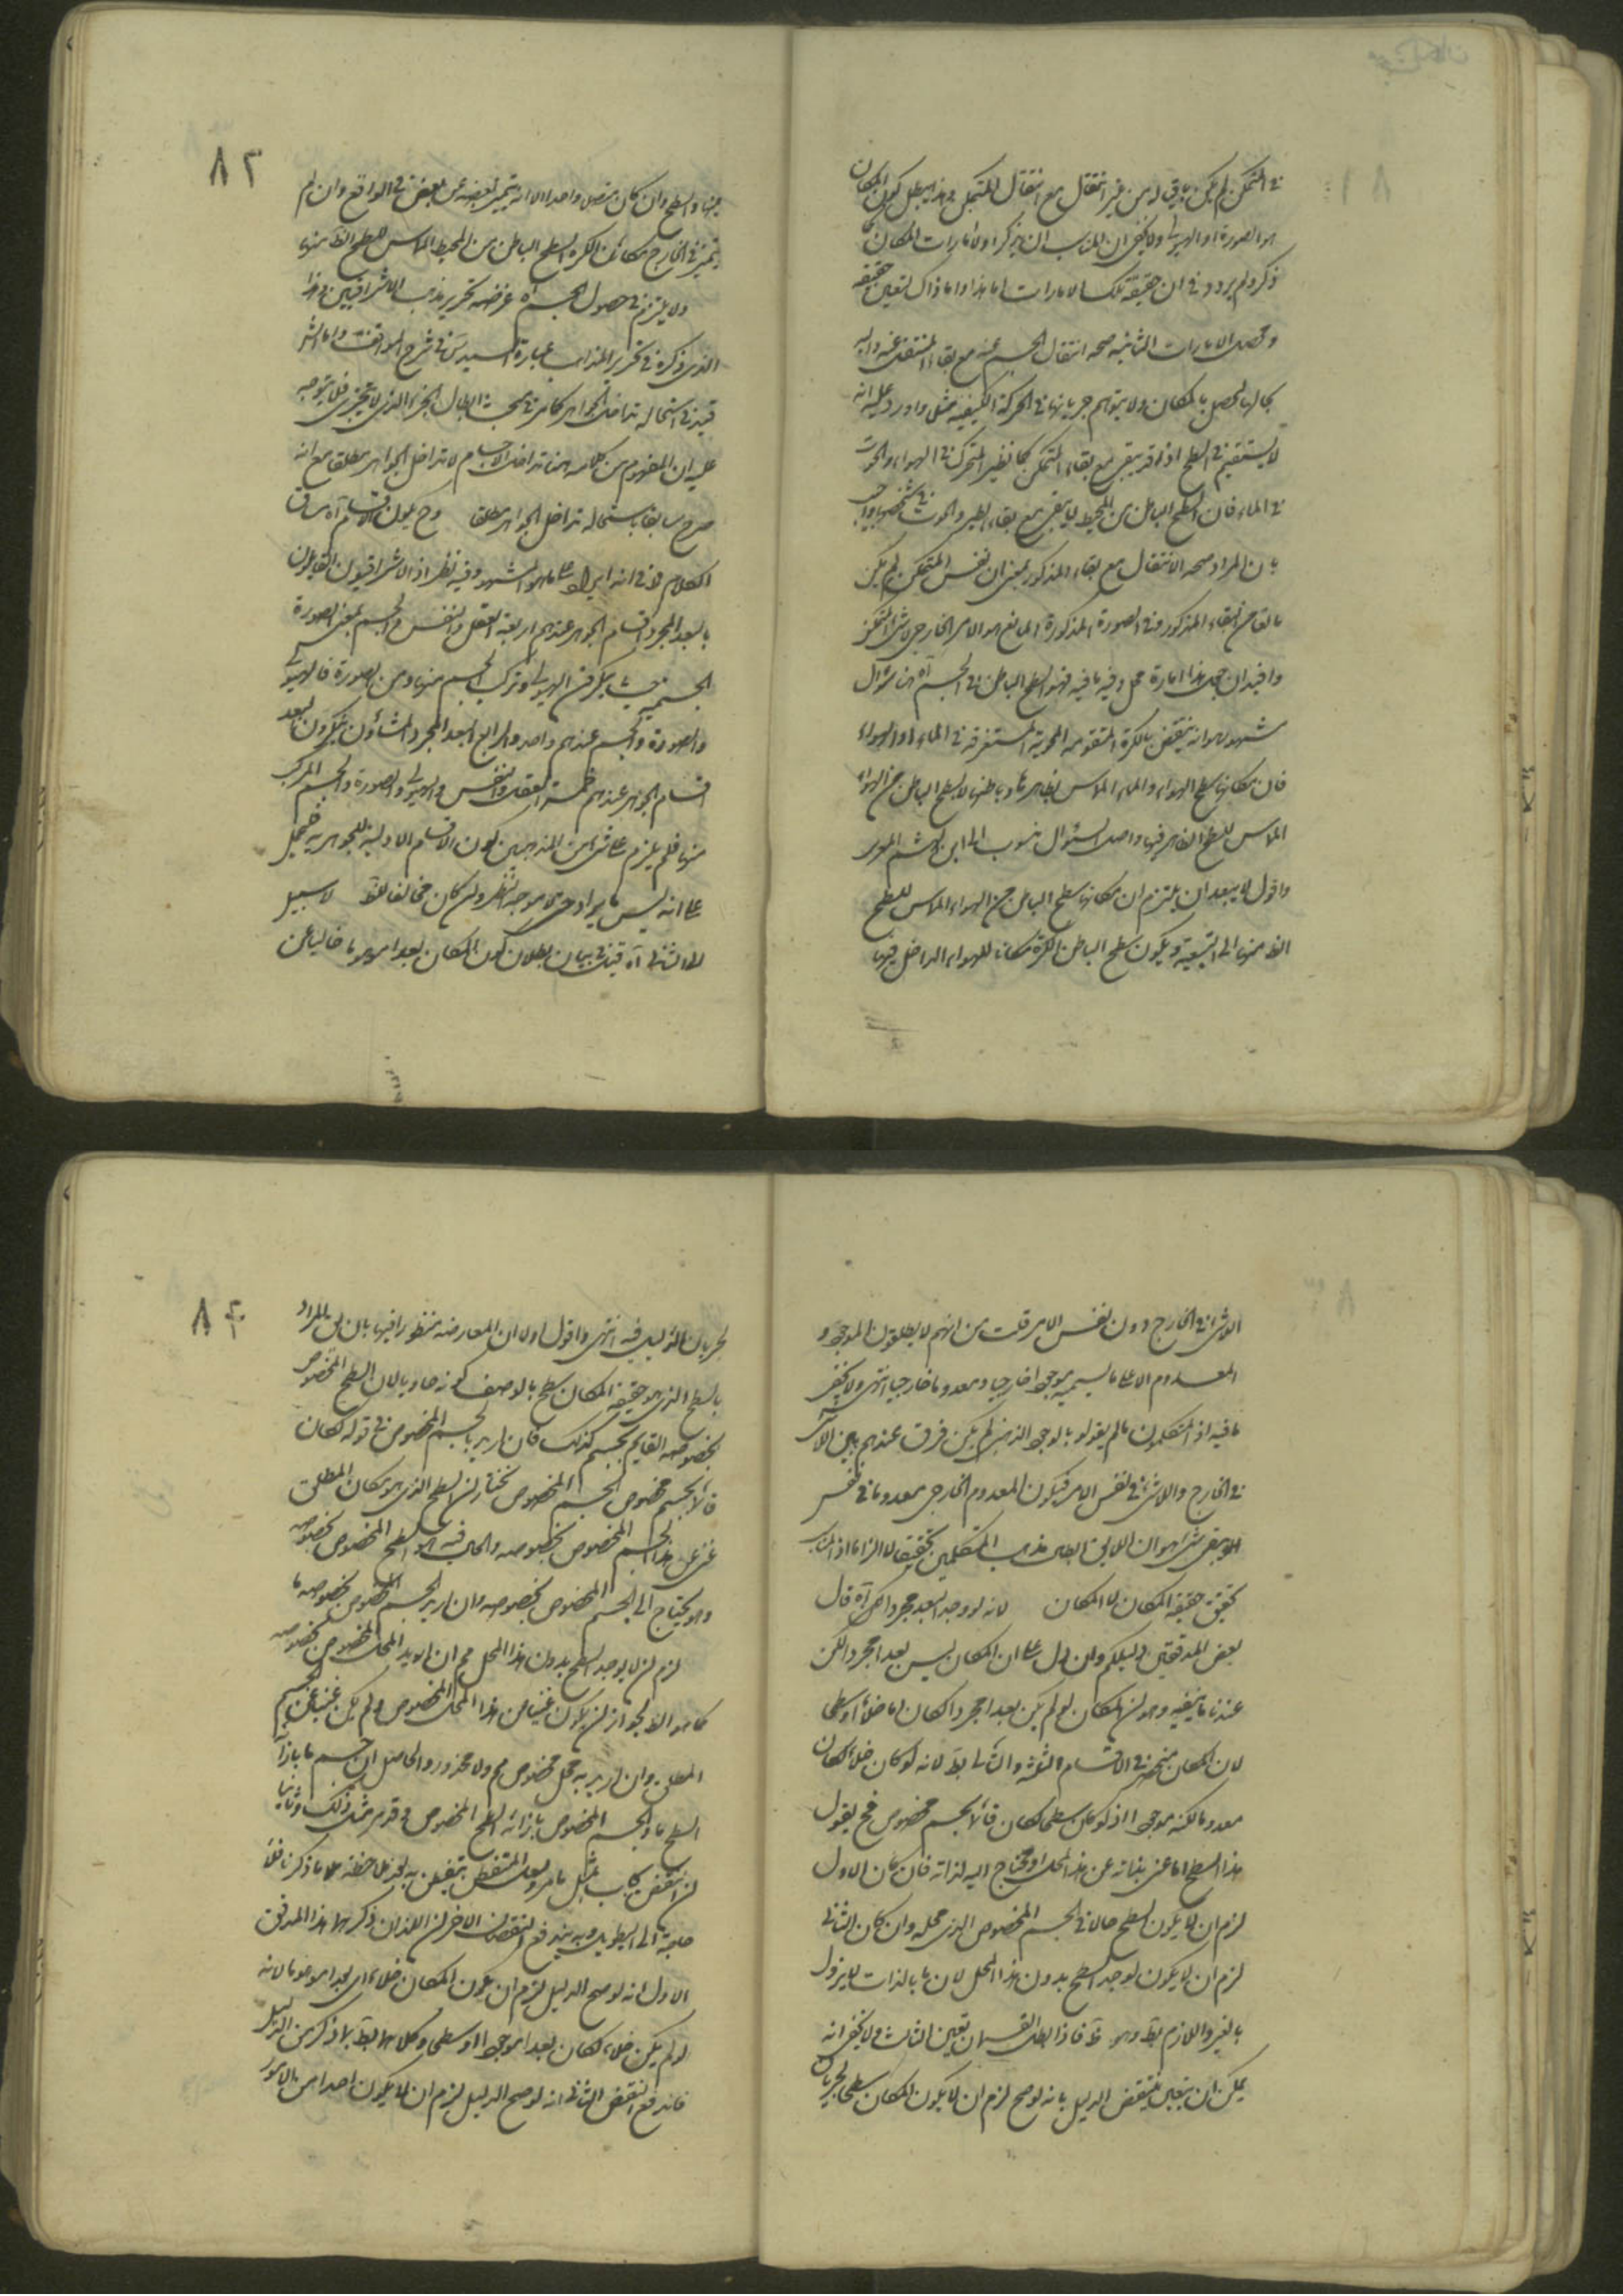 ٨١
في المتمكن لم يكن باقيا له من غير انتقال مع انتقال المتمكن وهذا يبطل كون المكان
هو الصورة او الهيولى ولا يخفى ان المناسب ان يذكر اولا امارات المكان
ذكر ولم يردد في ان حقيقة تلك الامارات اما هذا واما ذاك لتعين حقيقة
ومحصل الامارات الثانية صحة انتقال الجسم عنه مع بقاء المنتقل عنه واليه
بحالها يحصل بالمكان ولا يتوهم جريانها في الحركة الكيفية مثلا واورد عليه انه
لا يستقيم في السطح اذ قد يبقى مع بقاء المتمكن كما في الطير المتحرك في الهواء والحوت
في الماء فان السطح الباطن من المحيط لا يبقى مع بقاء الطير والحوت في شخصهما واجيب
بان المراد صحة الانتقال مع بقاء المذكور بمعنى ان نفس المتمكن لم يكن
مانعا من البقاء المذكور وفي الصورة المذكورة المانع هو الامر الخارجي لا المتمكن
وافيد ان جعل هذا امارة محل وفيه ما فيه فهو السطح الباطن من الجسم آه هنا سؤال
مشهور هو انه ينتقض بالكرة المثقوبة المجوفة المستغرقة في الماء او الهواء
فان مكانها سطح الهواء والماء المماس بظاهرها وباطنها لا السطح الباطن من الهواء
المماس للسطح الظاهر فيها واصل السؤال منسوب الى ابن
واقول لا يبعد ان يلتزم ان مكانها سطح الباطن من الهواء المماس للسطح
الظ منها الى التبعية ويكون سطح الباطن الكرة مكانا للهواء الداخل فيها
٨٢
منها والسطح وان كان متصلا واحدا الا انه يتميز بعضه عن بعض في الواقع وان لم
يتميز في الخارج مكان الكرة السطح الباطن من المحيط المماس للسطح الظ منها
ولا يلزم في حصول الجسم آه غرضه تحرير مذهب الاشراقيين هذا
الذي ذكره في تحرير المذاهب عبارة السيد س في شرح المواقف واما الش
قيد في استحالة تداخل الجواهر كما مر في مبحث ابطال الجزء الذي لا يتجزى فلا يتوجه
عليه ان المفهوم من كلامه هنا تداخل الاجسام لا تداخل الجواهر مطلقا مع انه
صرح سابقا باستحالة تداخل الجواهر مطلقا وح يكون الاقسام آه سياق
الكلام في انه ايراد على ما هو المشهور وفيه نظر اذ الاشراقيون القايلون
بالبعد المجرد اقسام الجوهر عندهم اربعة العقل والنفس والجسم بمعنى الصورة
الجسمية ينكرون الهيولى وتركب الجسم منها ومن الصورة فالهيولى
والصورة والجسم عندهم واحد والرابع البعد المجرد والمشاؤن ينكرون البعد
اقسام الجوهر عندهم خمسة العقل والنفس والهيولى والصورة والجسم المركب
منها فلم يلزم على شئ من المذهبين كون الاقسام الاولية للجوهر ستة فيحمل
على انه ليس بايراد حتى يتوجه النظر وان كان مخالفا للظ لا سبيل
الى الثاني آه قيل في بيان بطلان كون المكان بعدا موهوما خاليا عن
٨٣
الوشى في الخارج دون نفس الامر قلت من انهم لا يطلقون الموجود
المعدوم الا على ما يسميه موجودا خارجيا ومعدوما خارجيا انتهى ولا يخفى
ما فيه اذ المتكلمون مالم يقولوا بالوجود الذهني لم يكن فرق عندهم بين اللاشئ
في الخارج واللاشئ في نفس الامر فيكون المعدوم الخارجي معدوما في نفس
الامر بقى شئ هو ان اللايق ابطال مذهب المتكلمين تحقيقا لا الزاما اذ المناسب
تحقيق حقيقة المكان لا المكان لانه لو وجد البعد مجردا لكن آه قال
بعض المدققين دليلكم وان دل على ان المكان ليس بعدا مجردا لكن
عندنا ما ينفيه وهو ان المكان لو لم يكن بعدا مجردا لكان اما خلاء او سطحا
لان المكان منحصر في الاقسام الثلثة والثاني بط لانه لو كان خلاء لكان
معدوما لكنه موجود اذ لو كان سطحا لكان قائما بجسم مخصوص فح يقول
هذا السطح اما غنى بذاته عن هذا المحل او محتاج اليه لذاته فان كان الاول
لزم ان لا يكون السطح حالا في الجسم المخصوص الذي محله وان كان الثاني
لزم ان لا يكون يوجد السطح بدون هذا المحل لان ما بالذات لا يزول
بالغير واللازم بط وهو ظ فاذا بطل القسمان تعين الثالث ولا يخفى انه
يمكن ان يتعين ينتقض الدليل بانه لو صح لزم ان لا يكون المكان سطحا لجريان
٨٤
لجريان الدليل فيه انتهى واقول اولا ان المعارضة منظور فيها بان المراد
بالسطح الذي هو حقيقة المكان سطح بالوصف كونه حاويا لان السطح المخصوص
بخصوصه القايم بجسم كذلك فان اريد بالجسم المخصوص في قوله لكان
قائما بجسم مخصوص الجسم المخصوص نختار ان السطح الذي هو مكان المطلق
غنى عن هذا الجسم المخصوص بخصوصه والحال فيه هو السطح المخصوص بخصوصه
وهو يحتاج الى الجسم المخصوص بخصوصه وان اريد الجسم المخصوص بخصوصه ما
لزم ان لا يوجد السطح بدون هذا المحل مم ان اريد المحل المخصوص بخصوصه
كما هو الظ لجواز ان يكون غنيا من هذا المحل المخصوص ولم يكن غنيا عن الجسم
المطلق وان اريد به محل مخصوص مم ولا محذور والحاصل ان جسم ما بازاء
السطح ما والجسم المخصوص بازائه السطح المخصوص وقد مر مثل ذلك وثانيا
ان النقض بمثل ما مر ولعل المتفطن يتفطن به بعد ملاحظة ما ذكرنا فلا
حاجة الى التطويل وبه يندفع النقضان الاخران اللذان ذكرهما هذا المدقق
الاول انه لو صح الدليل لزم ان يكون المكان خلاء اى بعدا موهوما لانه
لو لم يكن خلاء لكان بعدا موجودا او سطحا وكلاهما بط بما ذكر من الدليل
فاندفع النقض الثاني انه لو صح الدليل لزم ان لا يكون احدا من الامور